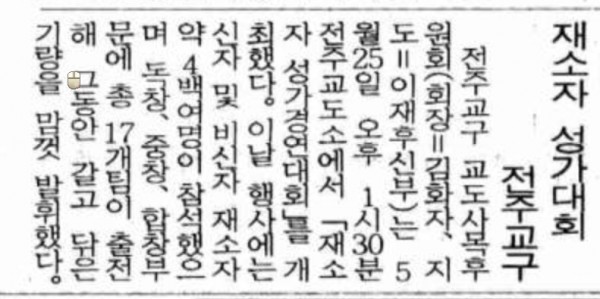 재소자 성가대회
전주교구
전주교구 교도사목후
원회(회장=김화자、지
도=이재후신부)는 5
월25일 오후 1시30분
전주교도소에서 「재소
자 성가경연대회」를 개
최했다。이날 행사에는
신자 및 비신자 재소자
약 4백여명이 참석했으
며 도창、중창、합창부
문에 총 17개팀이 출전
해 그동안 갈고 닦은
기량을 맘껏 발휘했다。